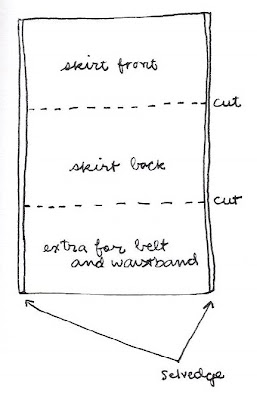 skirt front
cut
skirt back
cut
extra for belt
and waistband
selvedge